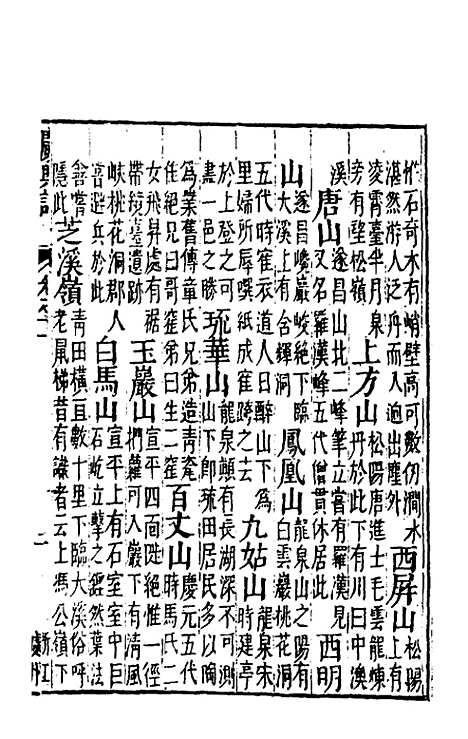 怪石奇木有峭壁高可數仞澗水
湛然游人泛舟而入逈出塵外
西屏山
松陽
上有
凌霄臺半月泉
旁有壑松嶺
上方山
松陽唐進士毛雲龍煉
丹於此下有川曰中澳
溪
唐山
遂昌山北二峰筆立嘗有羅漢見
又名羅漢峰五代僧貫休居此
西明
山
遂昌巉巖峻絶下臨
大溪上有合輝洞
鳳凰山
龍泉山之陽有
白雲巖桃花洞
五代時寉衣道人日醉山下為
里婦所辱噀紙成寉跨之去
九姑山
龍泉宋
時建亭
於上登之可
盡一邑之勝
琉華山
龍泉顛有長湖深不可測
下即琉田居民多以陶
為業舊傳章氏兄弟造青瓷
窑絶兄曰哥窑弟曰生二窑
百丈山
慶元五代
時馬氏二
女飛昇處有裾
帶鏡臺遺跡
玉巖山
宣平四面陡絶惟一徑
捫蘿可入巖下有清風
峽桃花洞郡人
避兵於此
白馬山
宣平上有石室室中巨
石屹立擊之鏗然葉法
善嘗
隱此
芝溪嶺
青田橫亘數十里下臨大溪俗呼
老鼠梯昔有讖者云上馮公嶺下
廣輿記
浙江
處州